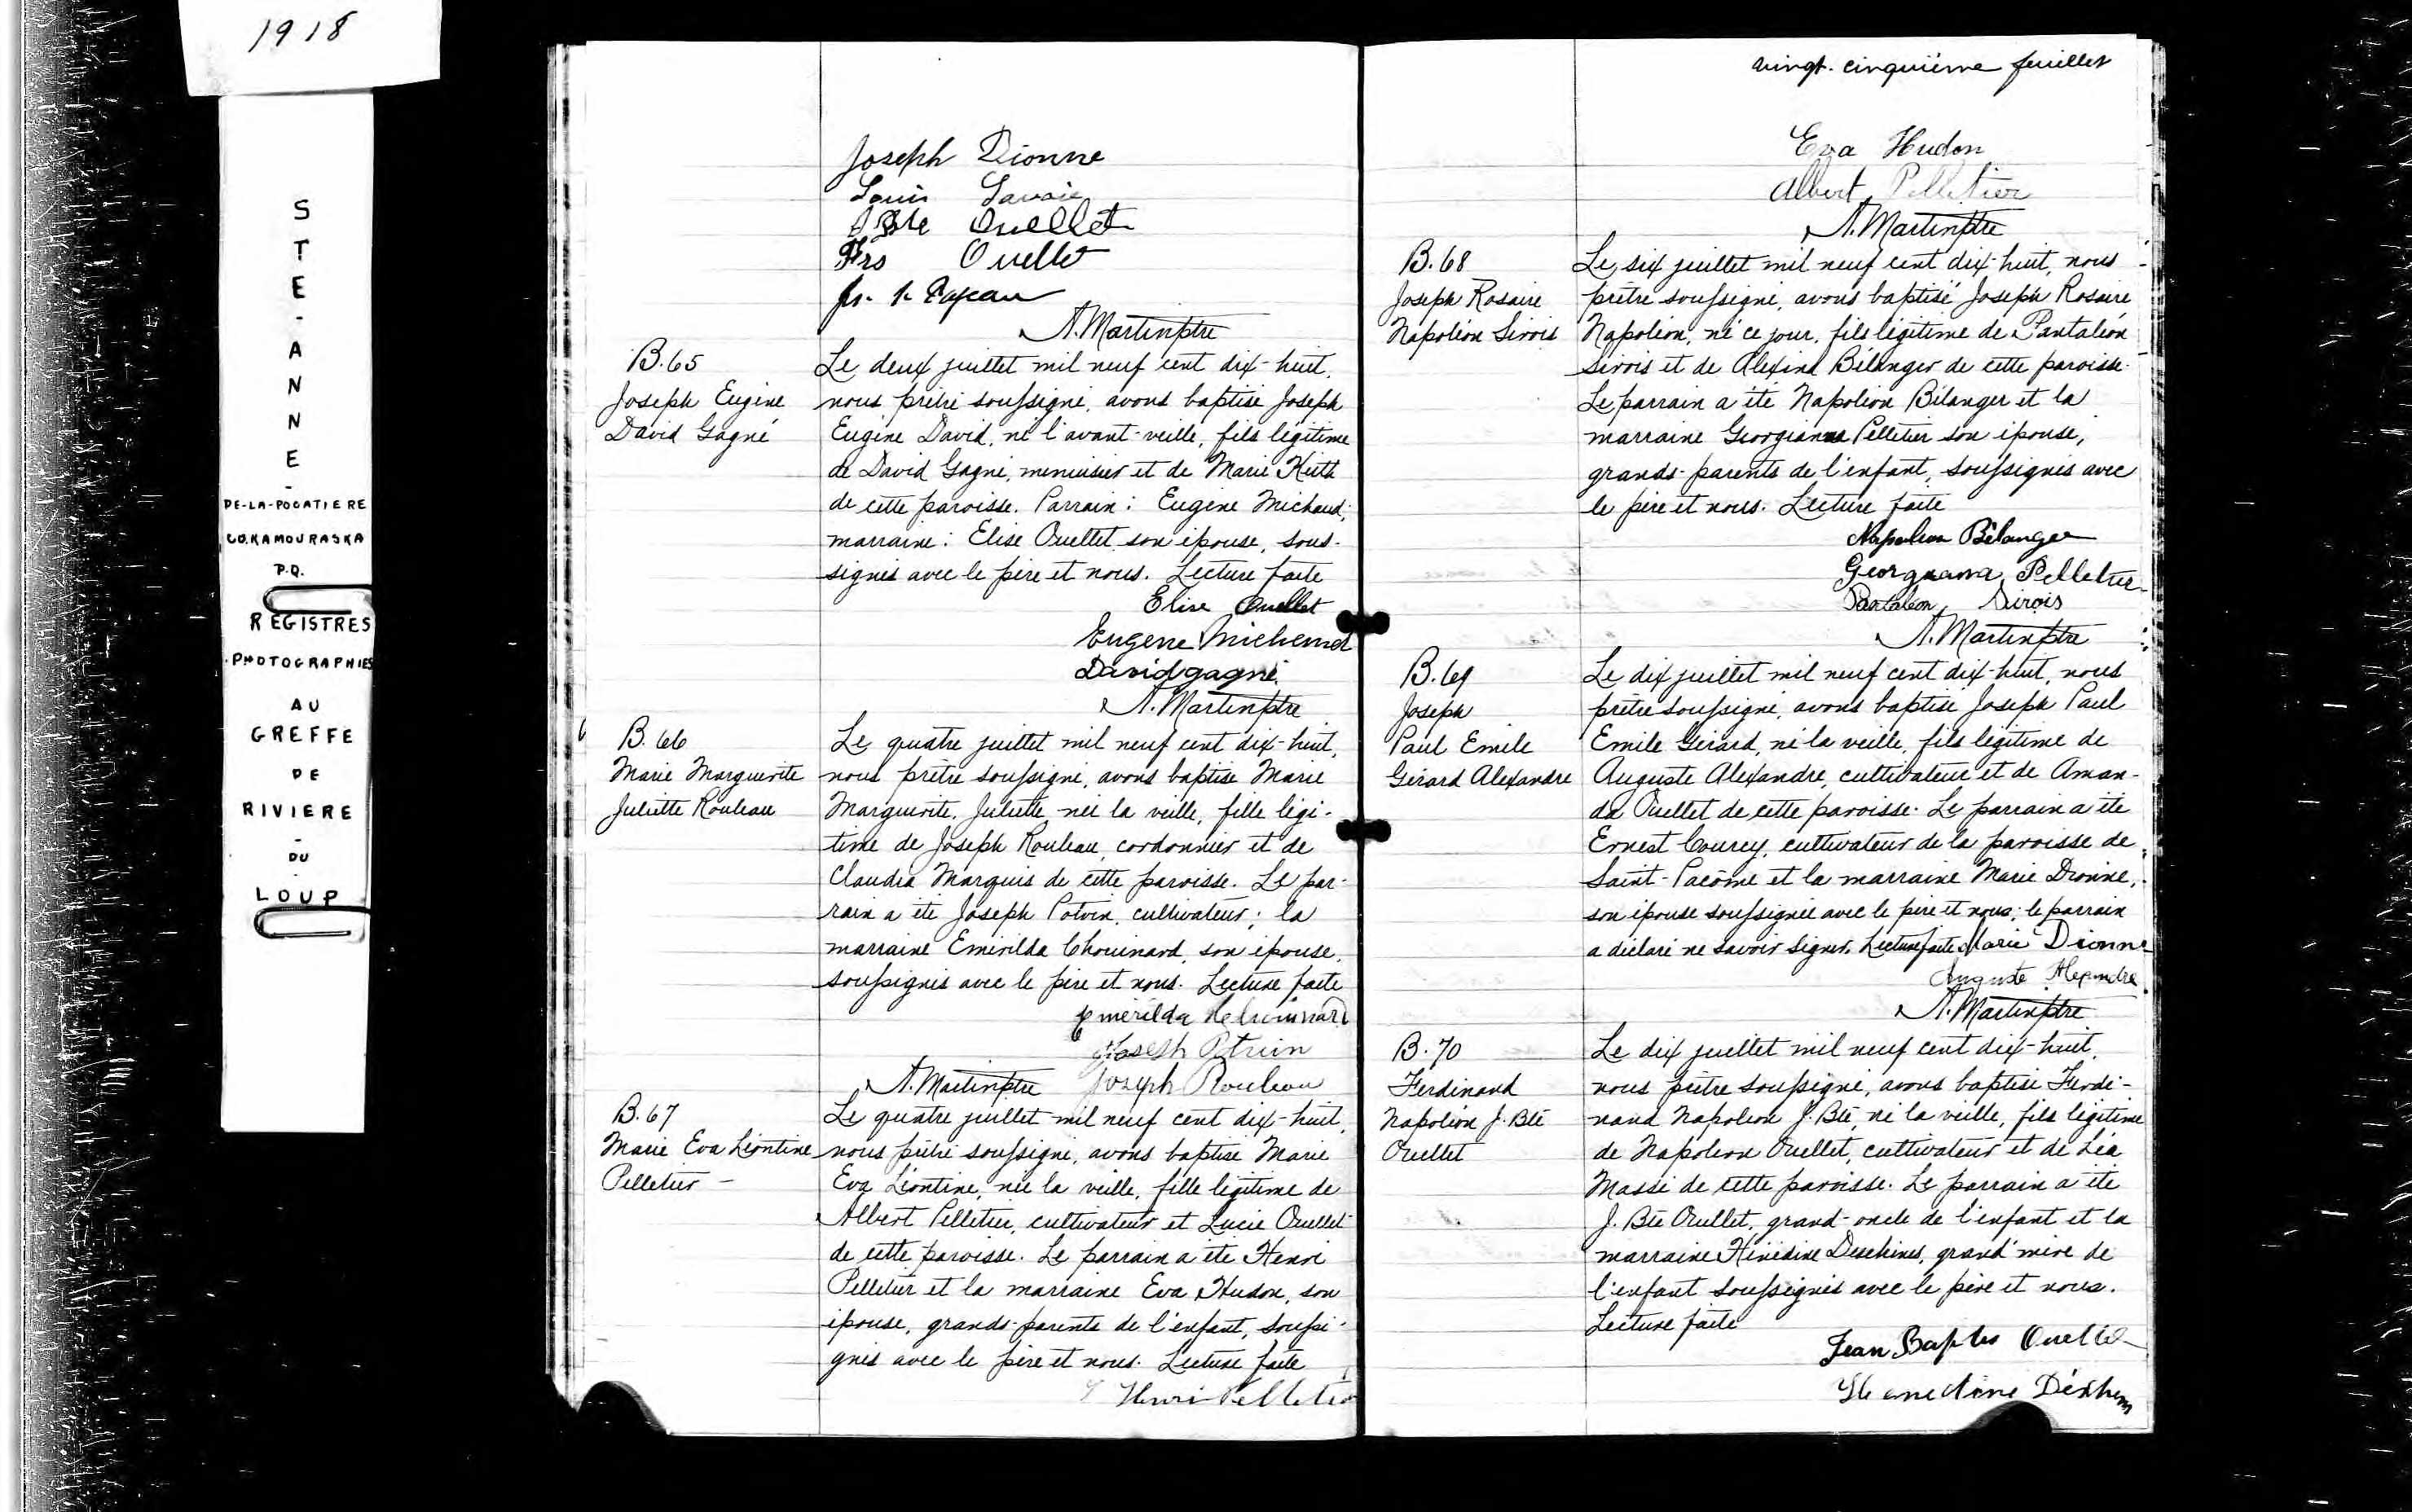 1918
STE-ANNE-
DE-LA-POCATIERE
CO. KAMOURASKA
P.Q.
REGISTRES
PHOTOGRAPHIES
AU
GREFFE
DE
RIVIERE
-
DU
-
LOUP
Joseph Dionne
Louis Lavoie
J Bte Ouellet
Frs Ouellet
A. Martin ptre
B.65
Joseph Eugène
David Gagné
Le deux juillet mil neuf cent dix-huit,
nous prêtre soussigné, avons baptisé Joseph
Eugène David, né l'avant-veille, fils légitime
de David Gagné, menuisier et de Marie Keith
de cette paroisse. Parrain: Eugène Michaud;
marraine: Elise Ouellet son épouse, sous-
signés avec le père et nous. Lecture faite
Elise Ouellet
Eugene Michaud
David gagné
A. Martin ptre
B.66
Marie Marguerite
Juliette Rouleau
Le quatre juillet mil neuf cent dix-huit,
nous prêtre soussigné, avons baptisé Marie
Marguerite Juliette née la veille, fille légi-
time de Joseph Rouleau, cordonnier et de
Claudia Marquis de cette paroisse. Le par-
rain a été Joseph Potvin, cultivateur; la
marraine Emérilda Chouinard, son épouse,
soussignés avec le père et nous. Lecture faite
Emérilda Chouinard
Joseph Potvin
A. Martin ptre Joseph Rouleau
B.67
Marie Eva Léontine
Pelletier -
Le quatre juillet mil neuf cent dix-huit,
nous prêtre soussigné, avons baptisé Marie
Eva Léontine, née la veille, fille légitime de
Albert Pelletier, cultivateur et Lucie Ouellet
de cette paroisse. Le parrain a été Henri
Pelletier et la marraine Eva Hudon, son
épouse, grands-parents de l'enfant, soussi-
gnés avec le père et nous. Lecture faite
Henri Pelletier
vingt-cinquième feuillet
Eva Hudon
Albert Pelletier
A. Martin ptre
B.68
Joseph Rosaire
Napoléon Sirois
Le six juillet mil neuf cent dix-huit, nous
prêtre soussigné, avons baptisé Joseph Rosaire
Napoléon, né ce jour, fils légitime de Pantaléon
Sirois et de Alexina Bélanger de cette paroisse.
Le parrain a été Napoléon Bélanger et la
marraine Georgianna Pelletier son épouse,
grands-parents de l'enfant, soussignés avec
le père et nous. Lecture faite
Napoleon Bélanger
Georgianna Pelletier
Pantaléon Sirois
A. Martin ptre
B.69
Joseph
Paul Emile
Gérard Alexandre
Le dix juillet mil neuf cent dix-huit, nous
prêtre soussigné, avons baptisé Joseph Paul
Emile Gérard, né la veille, fils légitime de
Auguste Alexandre, cultivateur et de Aman-
da Ouellet de cette paroisse. Le parrain a été
Ernest Courcy, cultivateur de la paroisse de
Saint-Pacôme et la marraine Marie Dionne,
son épouse soussignée avec le père et nous; le parrain
a déclaré ne savoir signer. Lecture faite Marie Dionne
Auguste Alexandre
A. Martin ptre
B.70
Ferdinand
Napoléon J. Bte
Ouellet
Le dix juillet mil neuf cent dix-huit,
nous prêtre soussigné, avons baptisé Ferdi-
nand Napoléon J. Bte, né la veille, fils légitime
de Napoléon Ouellet, cultivateur et de Léa
Massé de cette paroisse. Le parrain a été
J. Bte Ouellet, grand-oncle de l'enfant et la
marraine Hénédine Deschênes, grand'mère de
l'enfant soussignés avec le père et nous.
Lecture faite
Jean Baptes Ouellet
Henedine Déschenes